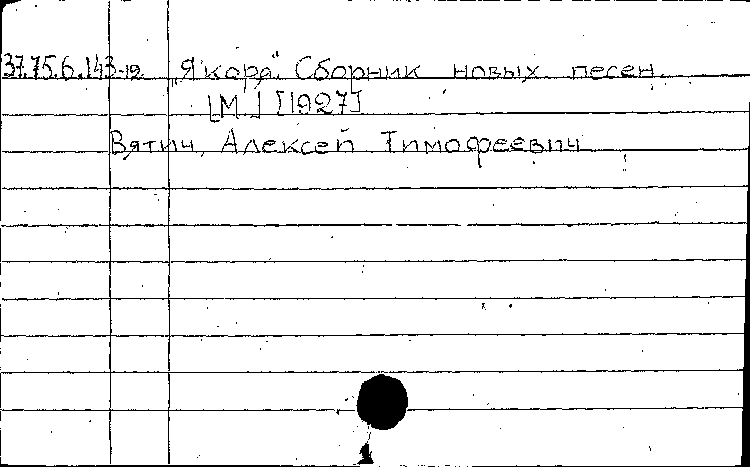 37.75.6.143-12 „Якоря". Сборник новых песен.
[М.] [1927]
Вятич, Алексей Тимофеевич